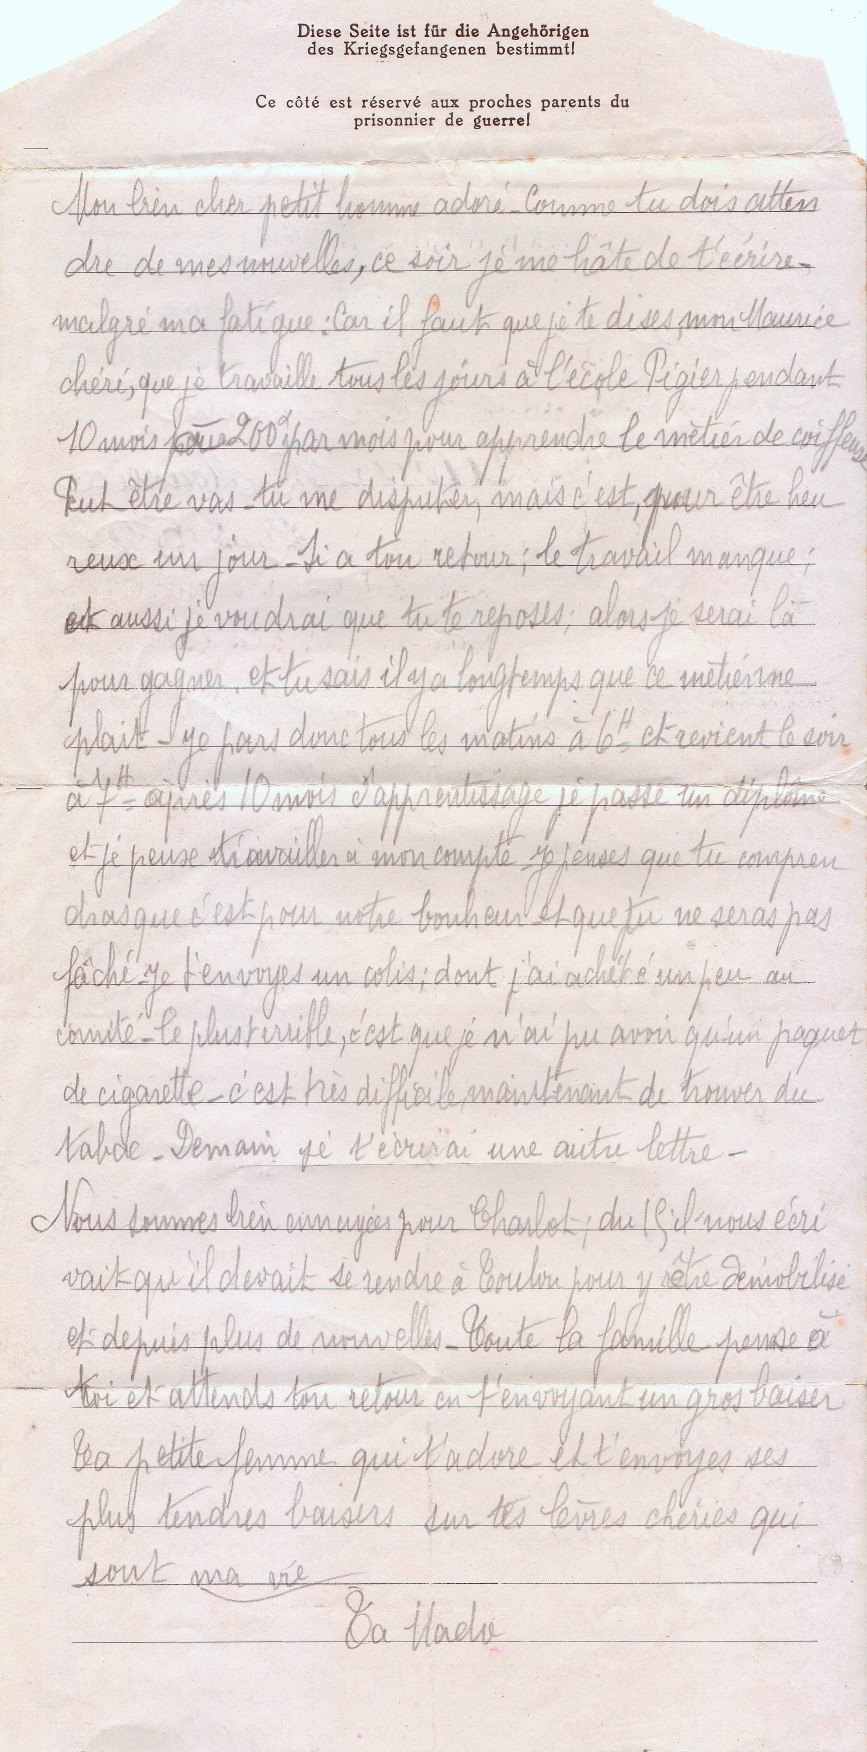 Diese Seite ist für die Angehörigen
des Kriegsgefangenen bestimmt!
Ce côté est réservé aux proches parents du
prisonnier de guerre!
Mon bien cher petit homme adoré - Comme tu dois atten
dre de mes nouvelles, ce soir je me hâte de t'écrire -
malgré ma fatigue : Car il faut que je te dises, mon Maurice
chéri, que je travaille tous les jours à l'école Pigier pendant
10 mois 200 par mois pour apprendre le métier de coiffeuse
Peut être vas-tu me disputer, mais c'est, pour être heu
reux un jour - Si a ton retour ; le travail manque ;
et aussi je voudrai que tu te reposes ; alors je serai là
pour gagner. et tu sais il y a longtemps que ce métier me
plait - Je pars donc tous les matins à 6H et revient le soir
à 7H - après 10 mois d'apprentissage je passe un diplôme
et je peux travailler à mon compte - Je penses que tu compren
dras que c'est pour notre bonheur et que tu ne seras pas
fâché - Je t'envoyes un colis ; dont j'ai acheté un peu au
comité - le plus terrible, c'est que je n'ai pu avoir qu'un paquet
de cigarette - c'est très difficile, maintenant de trouver du
tabac - Demain je t'écrirai une autre lettre -
Nous sommes bien ennuyées pour Charlot ; du 15 il nous écri
vait qu'il devait se rendre à Toulon pour y être démobilisé
et depuis plus de nouvelles - Toute la famille pense à
toi et attends ton retour en t'envoyant un gros baiser
Ta petite femme qui t'adore et t'envoyes ses
plus tendres baisers sur tes lèvres chéries qui
sont ma vie
Ta Mado